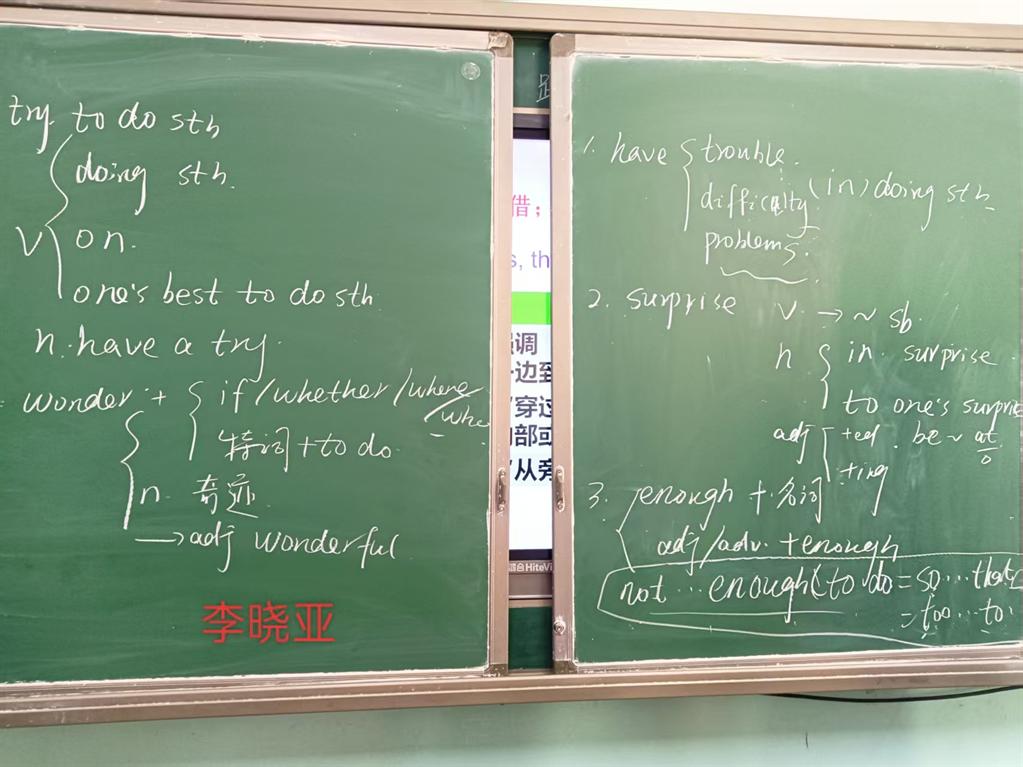 try to do sth
doing sth.
v
on.
one's best to do sth
n. have a try.
wonder + if/whether/where
/whe
特词+to do
n. 奇迹
→adj wonderful
李晓亚
借；
s, th
强调
一边到
穿过
内部或
从旁
HiteVi
1. have trouble.
difficulty (in) doing sth
problems.
2. surprise v. → ~ sb.
n in surprise
to one's surprise
adj +ed. be ~ at
+ing
3. enough + 名词
adj/adv. + enough
not … enough (to do = so … that
= too … to